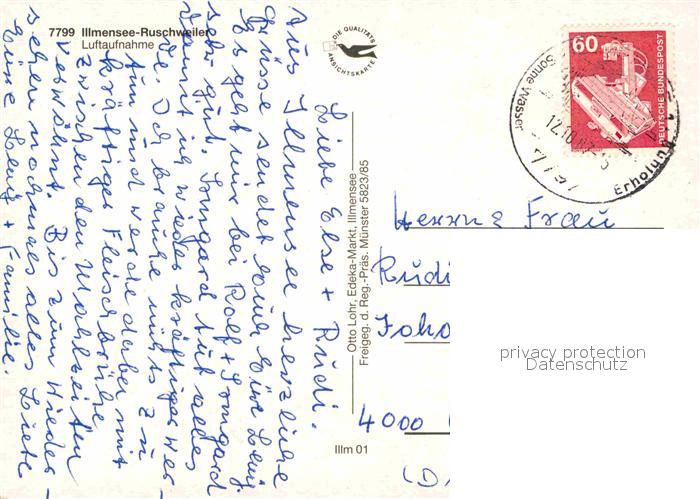 7799 Illmensee-Ruschweiler
Luftaufnahme
DIE QUALITÄTS
ANSICHTSKARTE
60
DEUTSCHE BUNDESPOST
Sonne Wasser
Erholung
12.10.87-15
Liebe Else + Rudi.
Aus Illmensee herzliche
Grüsse sendet Euch Eure Leny.
Es geht mir bei Rolf + Irmgard
sehr gut. Irmgard tut alles
damit ich wieder kräftiger wer-
de. Ich brauche nichts zu
tun und werde dabei mit
kräftiger Fleischbrühe
zwischen den Mahlzeiten
verwöhnt. Bis zum Wieder-
sehen nochmals alles Liebe
Eure Leny + Familie.
Otto Lohr, Edeka-Markt, Illmensee
Freigeg. d. Reg.-Präs. Münster 5823/85
Illm 01
Herrn & Frau
Rudi
Joho
4000
(D
privacy protection
Datenschutz